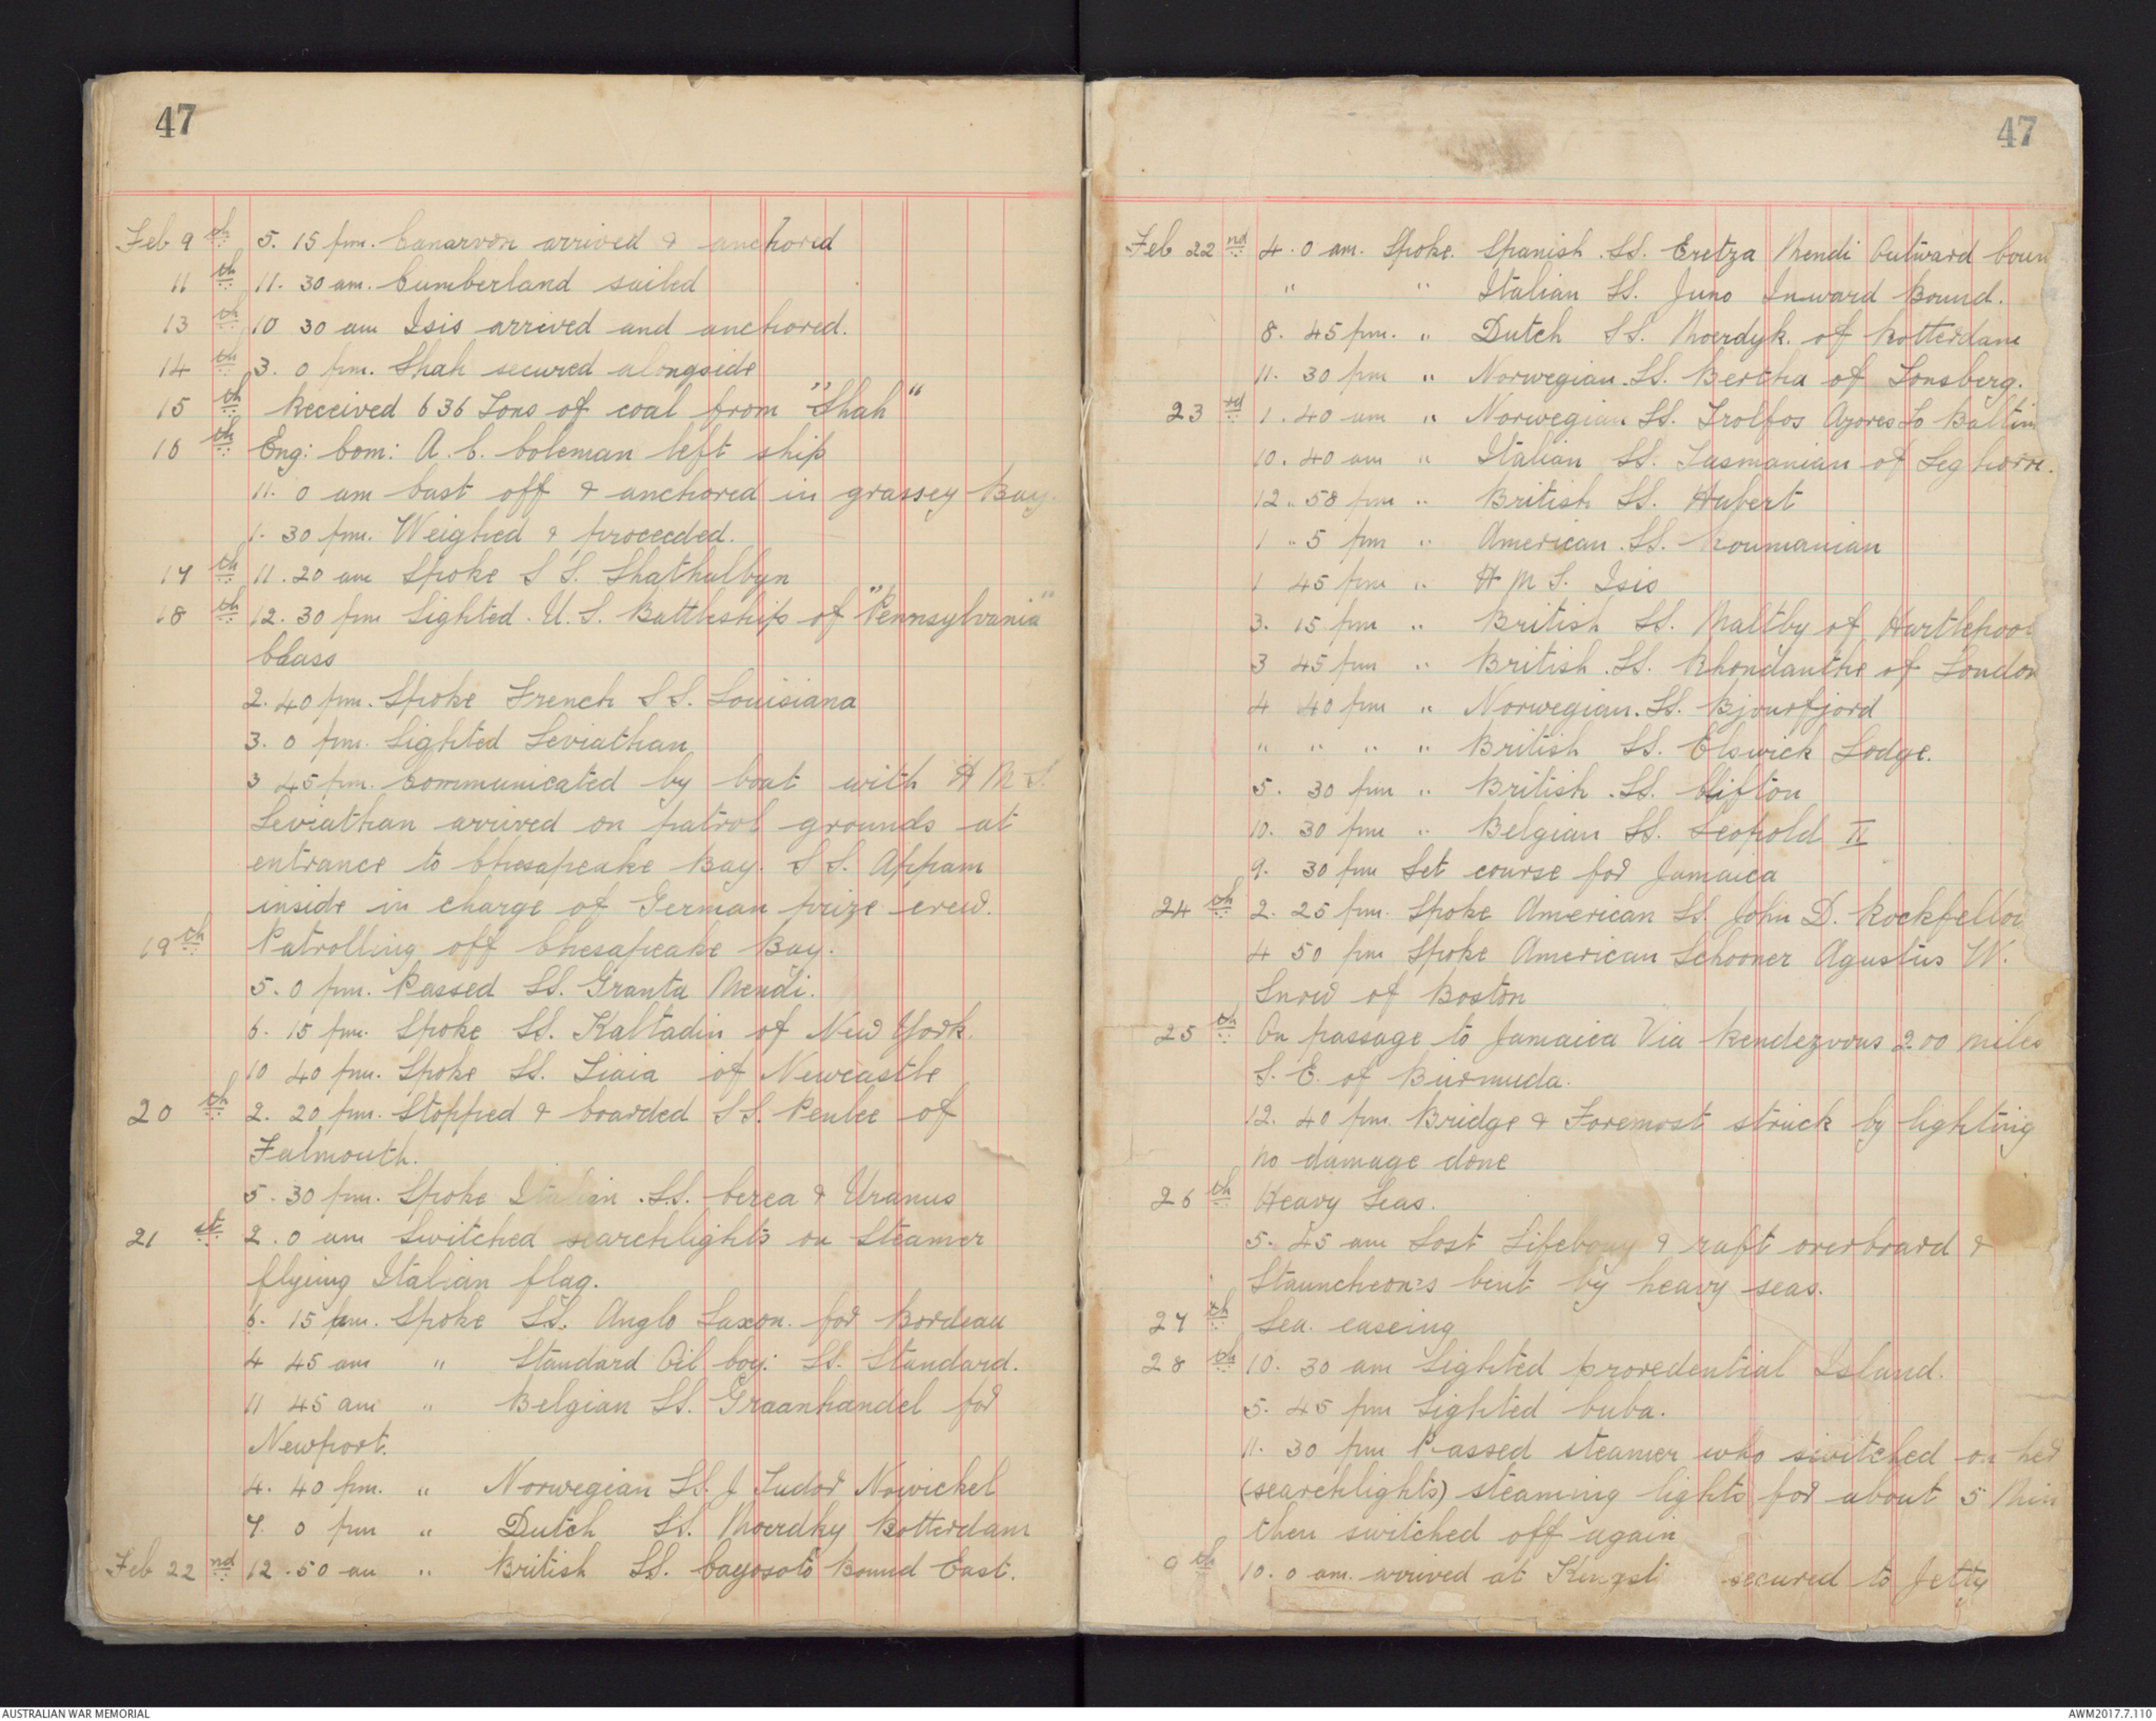 47
Feb 9th 5. 15 pm. Canarvon arrived & anchored
11th 11. 30 am. Cumberland sailed
13th 10 30 am Isis arrived and anchored.
14th 3. 0 pm. Shah secured alongside
15th Received 636 Tons of coal from "Shah"
16th Eng: Com: A. C. Coleman left ship
11. 0 am Cast off & anchored in grassey Bay.
1. 30 pm. Weighed & proceeded.
17th 11. 20 am Spoke S S. Shathalbyn
18th 12. 30 pm Sighted. U. S. Battleship of "Pennsylvania"
Class
2. 40 pm. Spoke French S S. Louisiana
3. 0 pm. Sighted Leviathan
3 45 pm. communicated by boat with H M S.
Leviathan arrived on patrol grounds at
entrance to Chesapeake Bay. S S. Appam
inside in charge of German prize crew.
19th Patrolling off Chesapeake Bay.
5. 0 pm. Passed SS. Granta Mendi.
6. 15 pm. Spoke SS. Kaltadin of New York.
10 40 pm. Spoke SS. Liaia of Newcastle
20th 2. 20 pm. Stopped & boarded S S. Penlee of
Falmouth.
5. 30 pm. Spoke Italian. SS. Cerea & Uranus
21st 2. 0 am Switched searchlights on Steamer
flying Italian flag.
6. 15 am. Spoke SS. Anglo Saxon. for Bordeau
4 45 am " Standard Oil Coy: SS. Standard.
11 45 am " Belgian SS. Graanhandel for
Newport.
4. 40 pm. " Norwegian SS. J Ludor Nowickel
7. 0 pm " Dutch SS. Moerdky Rotterdam
Feb 22nd 12. 50 am " British SS. Cayosoto Bound East.
47
Feb 22nd 4. 0 am. Spoke. Spanish. SS. Eretza Mendi Outward boun
" " Italian SS. Juno Inward Bound.
8. 45 pm. " Dutch SS. Moerdyk. of Rotterdam
11. 30 pm " Norwegian. SS. Bertha of Tonsberg.
23rd 1. 40 am " Norwegian SS. Trolfos Azores To Baltim
10. 40 am " Italian SS. Tasmanian of Leghorn.
12. 58 pm " British SS. Hubert
1 . 5 pm " American. SS. Roumanian
1 45 pm " H M S. Isis
3. 15 pm " British SS. Maltby of Hartlepool
3 45 pm " British. SS. Rhondanthe of London
4 40 pm " Norwegian. SS. Bjourfjord
" " " " British SS. Elswick Lodge.
5. 30 pm " British. SS. Clifton
10. 30 pm " Belgian SS. Leopold II
9. 30 pm Set course for Jamaica
24th 2. 25 pm. Spoke American SS. John D. Rockfellor
4 50 pm Spoke American Schooner Agustus W.
Snow of Boston
25th On passage to Jamaica Via Rendezvous 200 miles
S. E. of Burmuda.
12. 40 pm. Bridge & Foremost struck by lighting
no damage done
26th Heavy Seas.
5. 45 am Lost Lifebouy & raft overboard &
Stauncheon's bent by heavy seas.
27th Sea. easeing
28th 10. 30 am Sighted provedential Island.
5. 45 pm Sighted Cuba.
11. 30 pm Passed steamer who switched on her
(searchlights) steaming lights for about 5 Min
then switched off again
0th 10. 0 am. arrived at Kingst secured to Jetty
AUSTRALIAN WAR MEMORIAL
AWM2017.7.110